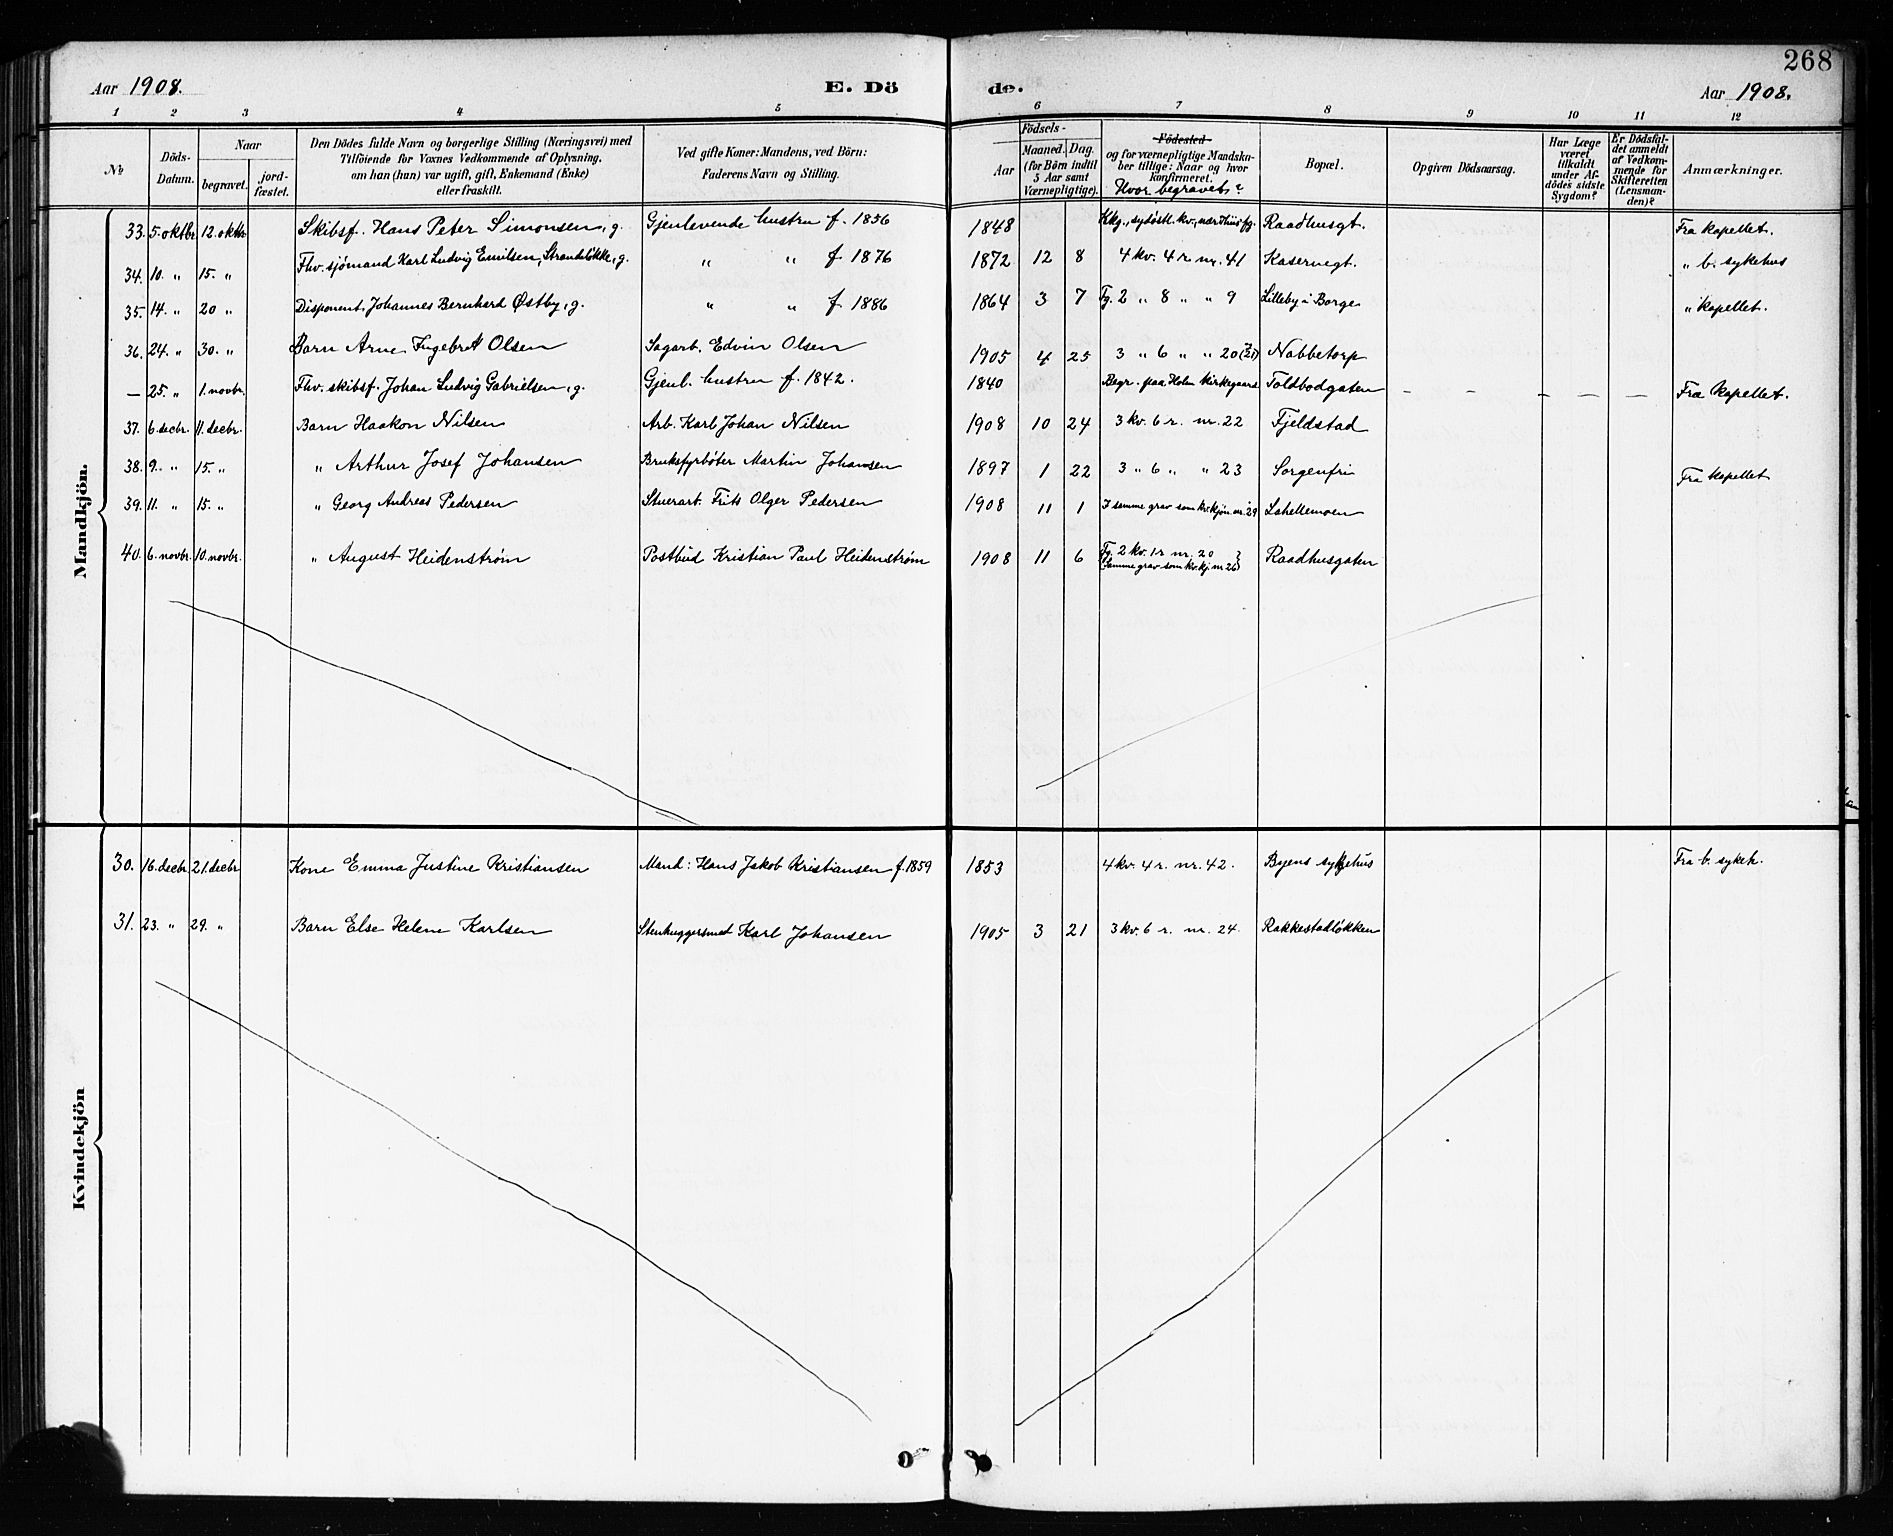 268
Aar 1908. E. Dö de. Aar 1908.
1 2 3 4 5 6 7 8 9 10 11 12
No
Döds-Datum.
Naar
begravet. jord-fæstet.
Den Dödes fulde Navn og borgerlige Stilling (Næringsvei) med
Tilföiende for Voxnes Vedkommende af Oplysning,
om han (hun) var ugift, gift, Enkemand (Enke)
eller fraskilt.
Ved gifte Koner: Mandens, ved Börn:
Faderens Navn og Stilling.
Födsels-
Aar Maaned. Dag.
(for Börn indtil
5 Aar samt
Værnepligtige).
Födested
og for værnepligtige Mandska-
ber tillige: Naar og hvor
konfirmeret.
Hvor begravet?
Bopæl.
Opgiven Dödsaarsag.
Har Læge
været
tilkaldt
under Af-
dödes sidste
Sygdom?
Er Dödsfal-
det anmeldt
af Vedkom-
mende for
Skifteretten
(Lensman-
den)?
Anmærkninger.
Mandkjön.
33. 5. oktbr. 12. oktbr. Skibsf. Hans Peter Simonsen, g. Gjenlevende hustru f. 1856 1848 Kkg., sydöstl. kv., nær Huusfg. Raadhusgt. Fra kapellet.
34. 10. " 15. " Fhv. sjömand Karl Ludvig Emilsen, Strandeløkke, g. " " f 1876 1872 12 8 4 kv. 4 r nr. 41 Kasernegt. " b. sykehus
35. 14. " 20 " Disponent Johannes Bernhard Østby, g. " " f 1886 1864 3 7 Fg. 2 " 8 " " 9 Lilleby i Borge " kapellet.
36. 24. " 30. " Barn Arne Ingebret Olsen Sagarb. Edvin Olsen 1905 4 25 3 " 6 " " 20 (21) Nabbetorp
— 25. " 1. novbr. Fhv. skibsf. Johan Ludvig Gabrielsen, g. Gjenl. hustru f. 1842. 1840 Begr. paa Holm kirkegaard Toldbodgaten — — — — — Fra kapellet.
37. 6. decbr. 11. decbr. Barn Haakon Nilsen Arb. Karl Johan Nilsen 1908 10 24 3 kv. 6 r. nr. 22 Fjeldstad
38. 9. " 15. " " Arthur Josef Johansen Bruksfyrbøter Martin Johansen 1897 1 22 3 " 6 " " 23 Sorgenfri Fra kapellet
39. 11. " 15. " " Georg Andreas Pedersen Stuerarb. Frits Olger Pedersen 1908 11 1 I samme grav som kv.kjön nr. 29 Lahellemoen
40. 6. novbr. 10. novbr. " August Heidenstrøm Postbud Kristian Paul Heidenstrøm 1908 11 6 Fg. 2 kv. 1 r nr. 20 (samme grav som kv.kj. nr 26) Raadhusgaten
Kvindekjön
30. 16. decbr. 21. decbr Kone Emma Justine Kristiansen Mand: Hans Jakob Kristiansen f. 1859 1853 4 kv. 4 r. nr. 42. Byens sykehus Fra b. sykeh.
31. 23. " 29. " Barn Else Helene Karlsen Stenhuggersmed Karl Johansen 1905 3 21 3 kv. 6 r. nr. 24. Rakkestadløkken